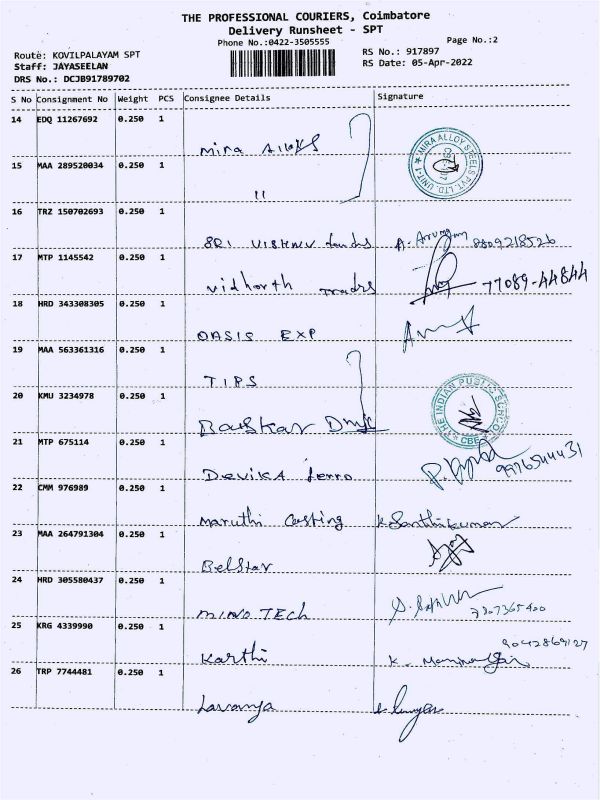 THE PROFESSIONAL COURIERS, Coimbatore
Delivery Runsheet - SPT
Phone No.:0422-3505555
Page No.:2
Route: KOVILPALAYAM SPT
RS No.: 917897
Staff: JAYASEELAN
RS Date: 05-Apr-2022
DRS No.: DCJB91789702
S No Consignment No Weight PCS Consignee Details Signature
14 EDQ 11267692 0.250 1
Mira Alloys
MIRA ALLOY STEELS PVT. LTD. UNIT-1
15 MAA 289520034 0.250 1
11
16 TRZ 150702693 0.250 1
SRI VISHNU
17 MTP 1145542 0.250 1
Vidharth Tradrs 77089-44844
18 HRD 343308305 0.250 1
OASIS EXP
19 MAA 563361316 0.250 1
TIPS
THE INDIAN PUBLIC SCHOOL CBE
20 KMU 3234978 0.250 1
21 MTP 675114 0.250 1
DEVIKA ferro
22 CMM 976989 0.250 1
Maruthi Casting K Santhikumar
23 MAA 264791304 0.250 1
BelStar
24 HRD 305580437 0.250 1
MINO TECH
25 KRG 4339990 0.250 1
9042869127
Karthi K.
26 TRP 7744481 0.250 1
Lavanya